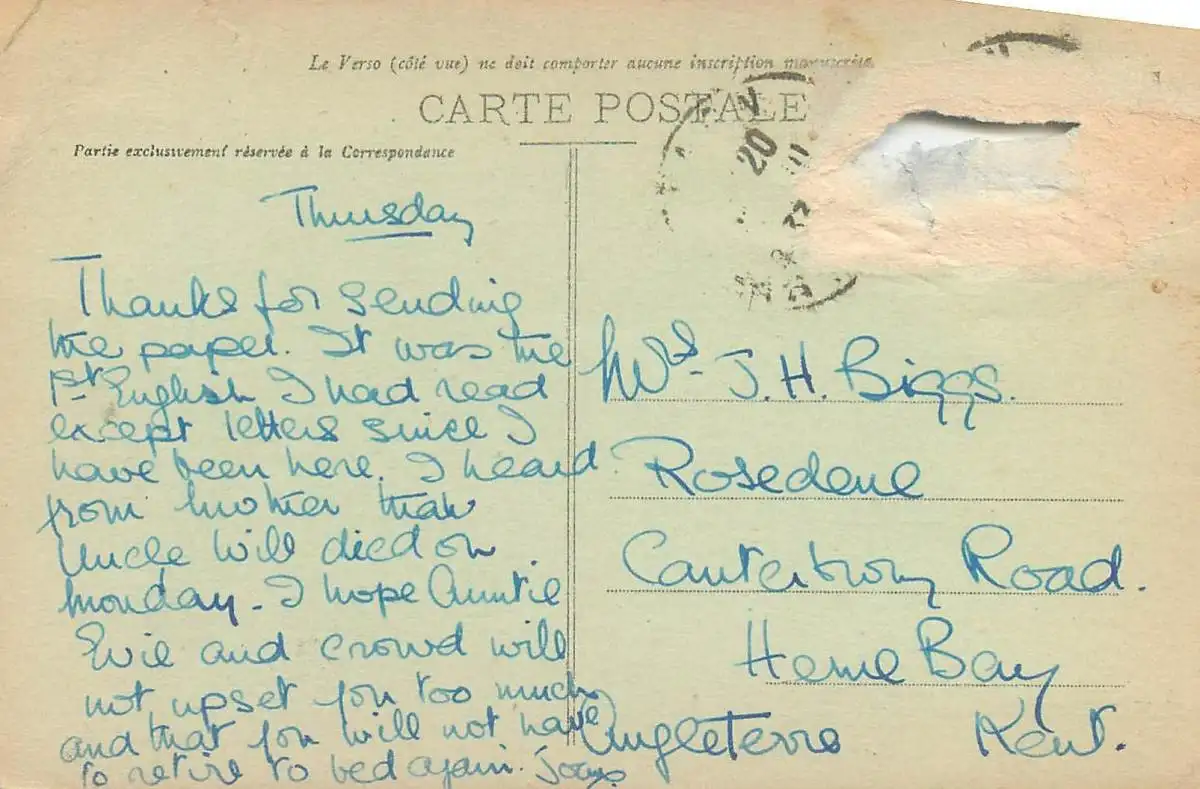 Le Verso (côté vue) ne doit comporter aucune inscription manuscrite
CARTE POSTALE
Partie exclusivement réservée à la Correspondance
20
Thursday
Thanks for sending
the paper. It was the
1st English I had read
except letters since I
have been here. I heard
from mother that
Uncle Will died on
monday. I hope Auntie
Evie and crowd will
not upset you too much
and that you will not have
to retire to bed again.
Mrs. J. H. Biggs.
Rosedene
Canterbury Road.
Herne Bay
Angleterre Kent.